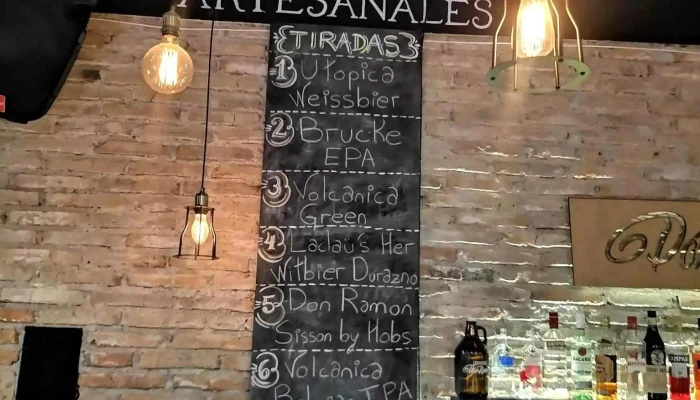 ARTESANALES
TIRADAS
1 Utopica
Weissbier
2 Brucke
EPA
3 Volcanica
Green
4 Laclau's Her
Witbier Durazno
5 Don Ramon
Sisson by Hobs
6 Volcanica
IPA
CAMPARI